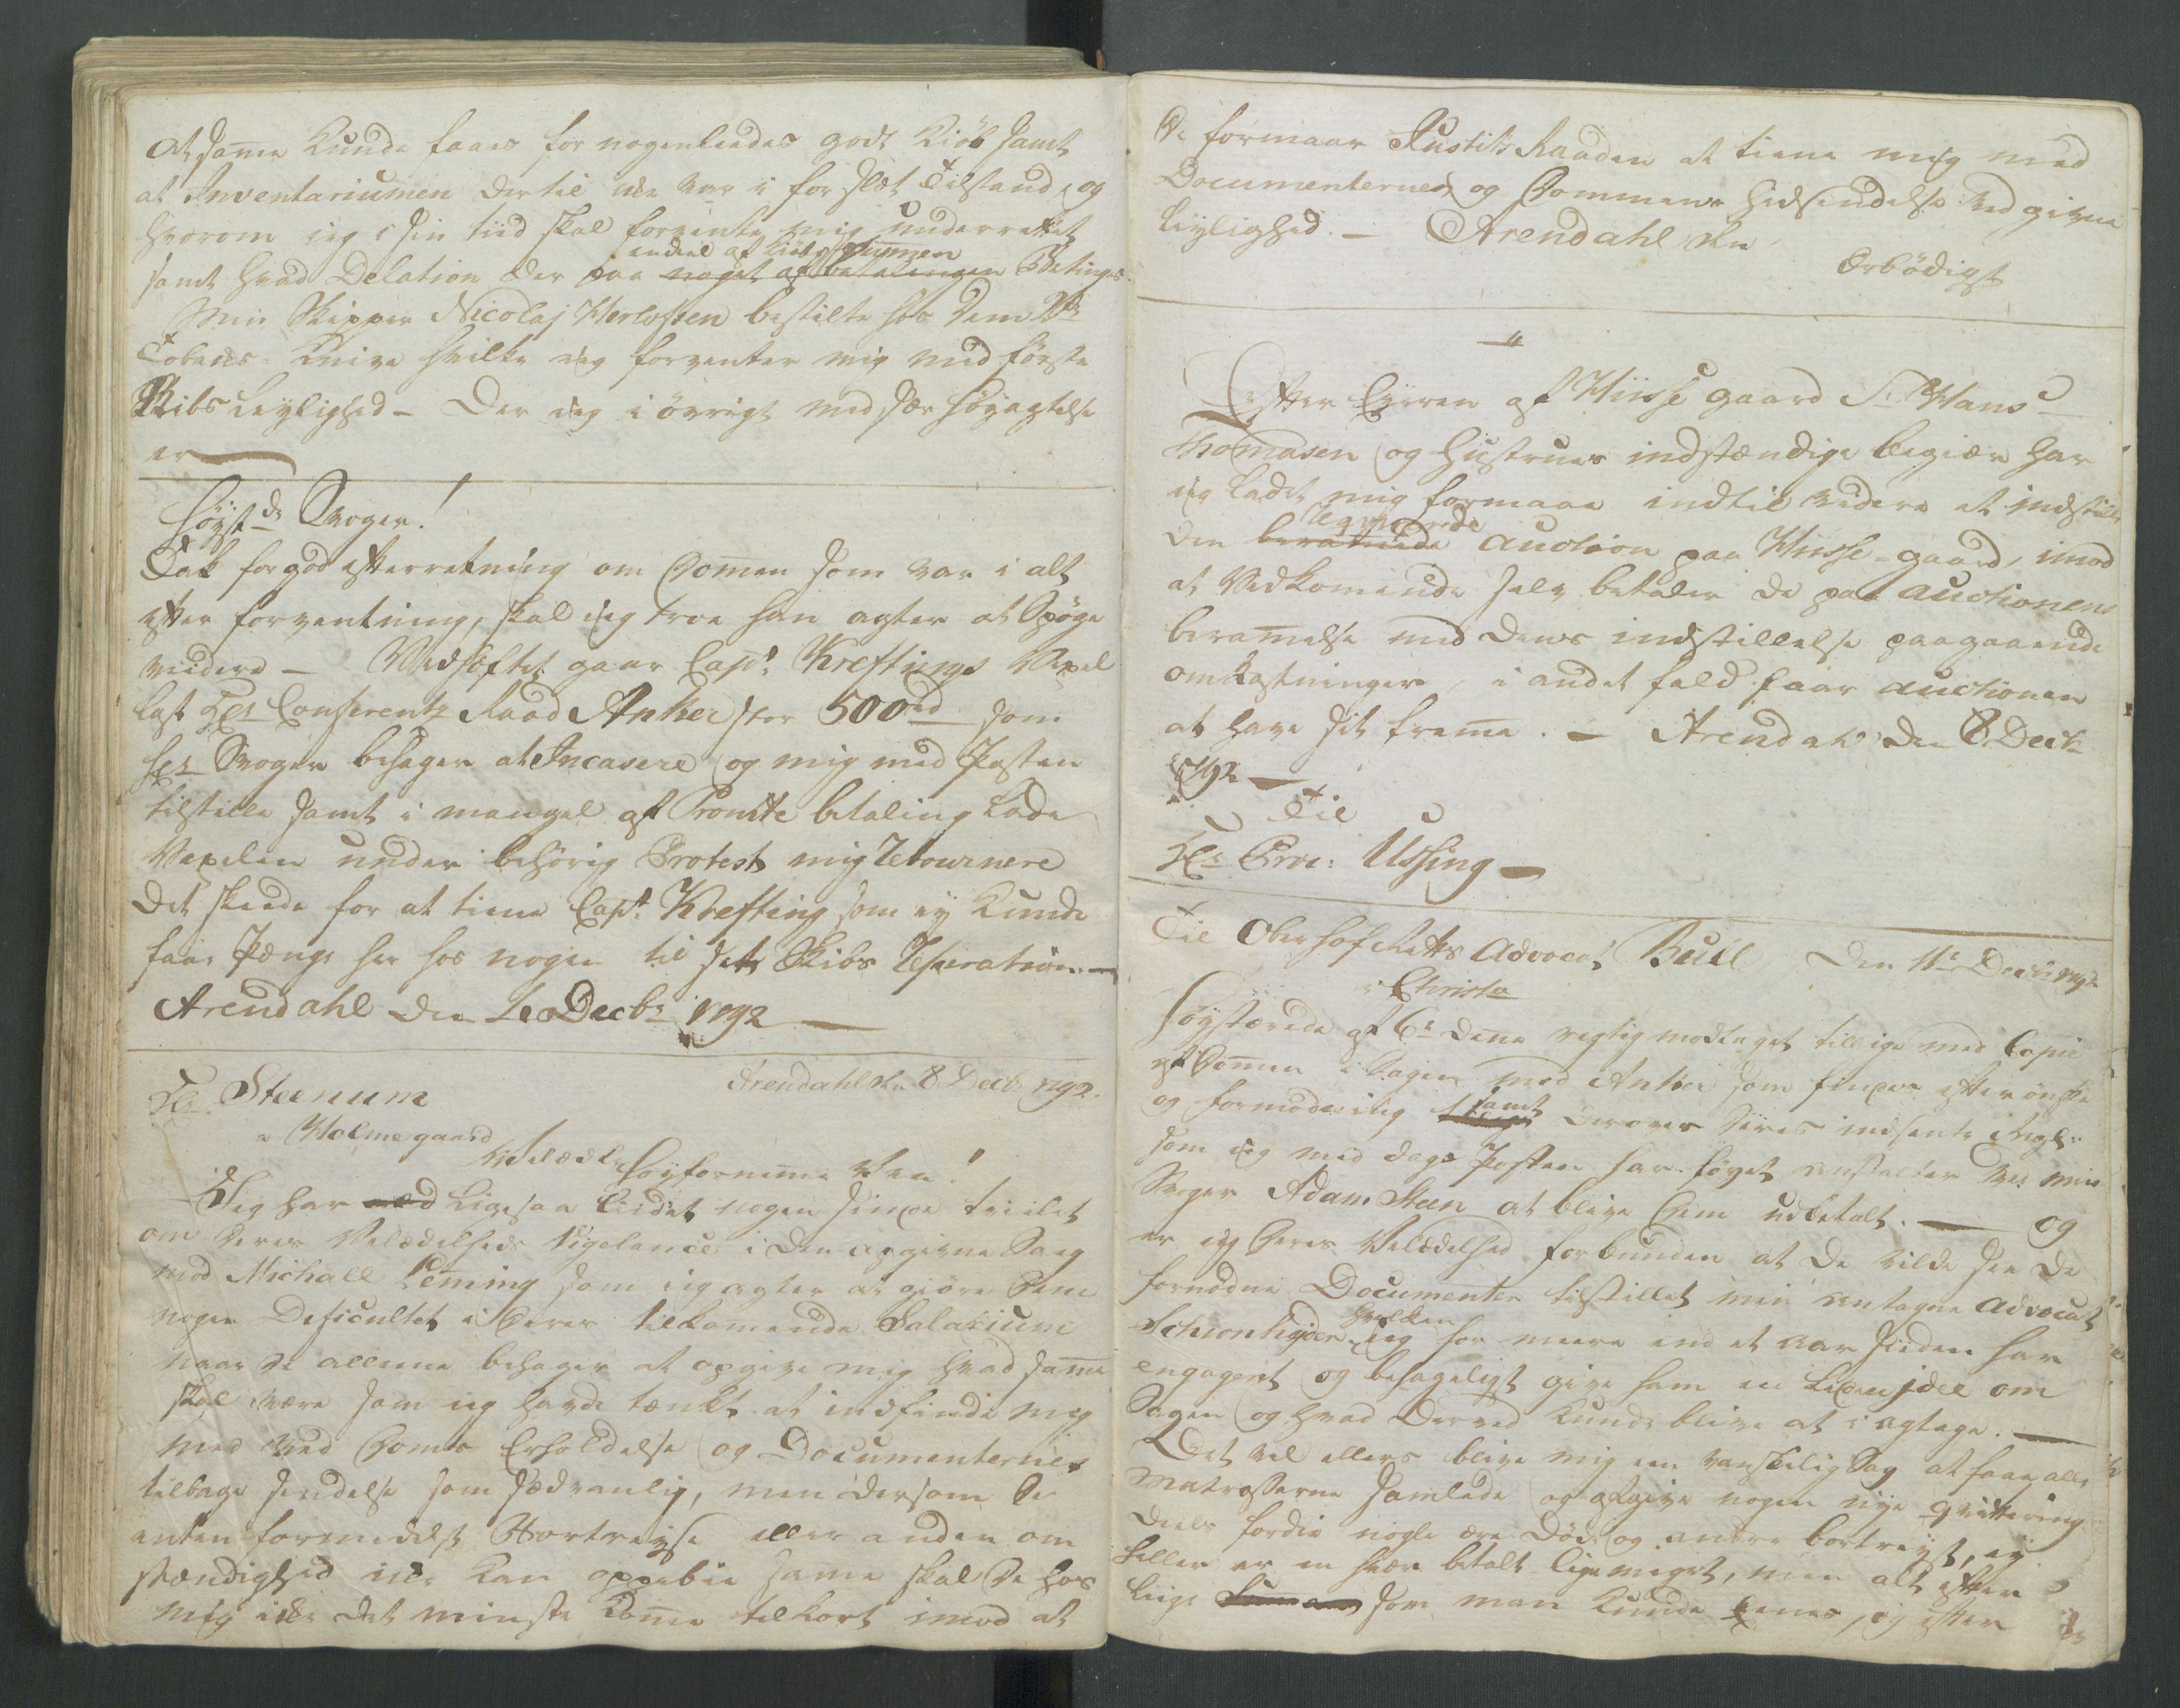 at samme kunde faaes for nogenleedes godt Kiöb samt
at Inventariumen dertil icke var i for slet Tilstand, og
hvorom jeg i sin tiid skal forvente mig underrettet
endeel af Kiöbesummen
samt hvad Delation der paa noget af betalingen Betinges.
Min Skipper Nicolaj Herlofsen bestilte hos Dem
Tobacks Knive hvilke jeg forventer mig med förste
Skibs Leylighed – Der jeg i övrigt med sær höyagtelse
er
Höyst. Svoger!
Tak for god efterretning om Dommen som var i alt
efter forventning, skal jeg troe han agter at Spöge
videre – Vedheftet gaar Capt. Kreftings Vexel
last Hr Conferentz Raad Anker stor 500rd som
Hr Svoger behager at Incasere og mig med Posten
tilstille samt i mangel af Promte betaling lade
Vexelen under behörig Protest mig Retournere
det skeede for at tiene Capt. Krefting som ey kunde
faae Penge her hos nogen til sit Skibs Reperation.
Arendahl den Decbr 1792
Hr. Steenum Arendahl den 8 Decb. 1792.
a Holmegaard
Velædle Höyfornemme Ven!
Jeg har med ligesaa lidet nogen sinde tvilet
om Deres Velædelheds Vigelance i den opgivne Sag
mod Michall Lemming som jeg agter at giöre Dem
nogen Deficultet i Deres tilkommende Salarium
naar De allene behager at opgive mig hvad samme
skal være som jeg havde tænkt at indfinde mig
med ved Doms Erholdelse og Documenternes
tilbage sendelse som sædvanlig, men dersom De
enten formedelst Bortreyse eller anden om
stændighed icke kan oppebie samme skal De hos
mig icke det minste komme tilkort imod at
De formaar Justits Raaden at tiene mig med
Documenternes og Dommens hidsendelse ved given
Leylighed. – Arendahl den
Ærbödigst
Efter Eyeren af Hiisse gaard Sr. Hans
Thomasen og Hustrues indstændige begiær har
jeg ladet mig formaae indtil videre at indstille
den berammede auction paa Hiisse-gaard, imod
at Vedkommende selv betaler de paa auctionens
berammelse med dens indstillelse paagaaende
omkostninger, i andet fald faar auctionen
at have sit fremme. – Arendahl den 8 Decb.
1792
Til
Hr. Proc: Ussing –
Til Oberhof Retts Advocat Bull Den 11te Decbr 1792
i Christa
Höystærede af 6te dennes rigtig modtaget tillige med Copie
af Dommen i Sagen med Anker som efter önske
og formodning samt derover Deres indsente Regl:
som jeg med dags Posten har föyet anstalter ved min
Svoger Adam Steen at blive Dem udbetalt. — og
er jeg Deres Velædelhed forbunden at De vilde see de
fornödne Documenter tilstillet min antagne Advocat
hvilken
Schionhyder jeg for meere end et aar siden har
engageret og behageligst give ham en liden jdee om
Sagen og hvad derved kunde blive at i agtage. —
Det vil ellers blive mig een vanskelig Sag at faae alle
Matroserne samlede og afgive nogen nye qvittering
deels fordi nogle ere Död og andre bortreyst, ey
heller er en hver betalt lige meget, men alt efter
lige som man kunde eenes, og efter